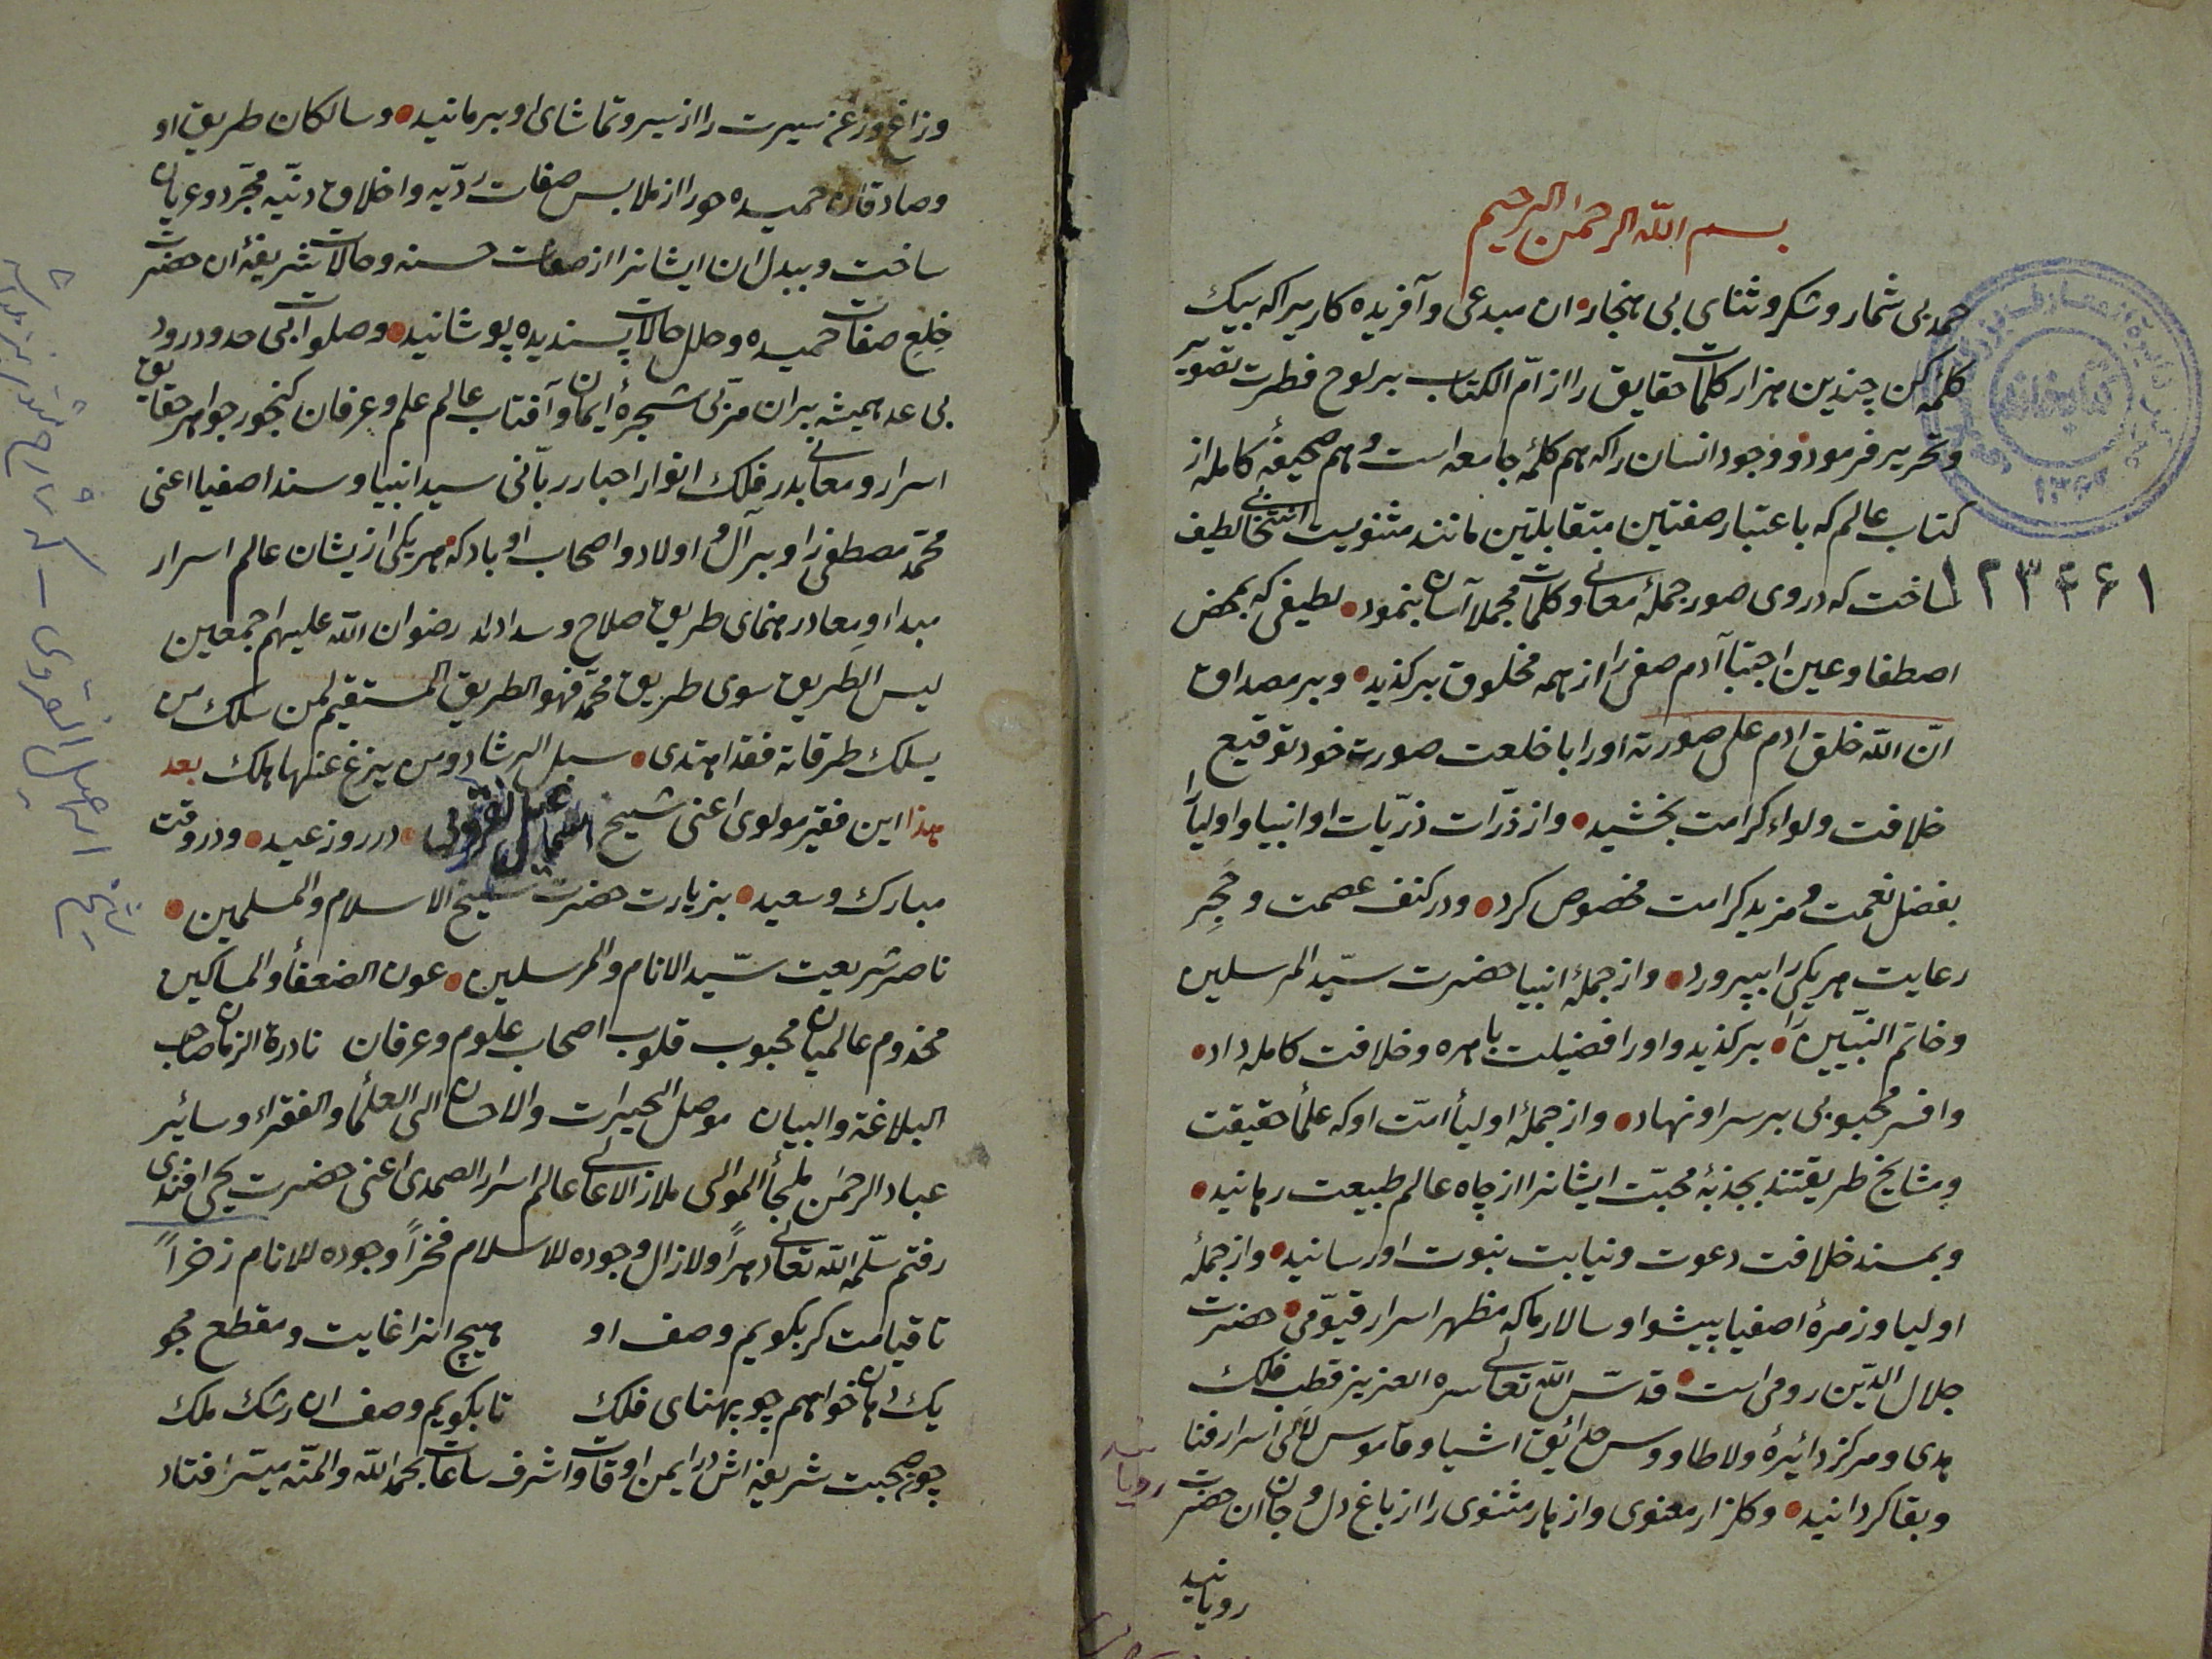 بسم الله الرحمن الرحیم
حمد بی شمار و شکر و ثنای بی هنجار ان مبدعی و آفریده کاریرا که بیک
کلمۀ کن چندین هزار کلمات حقایق را از امّ الکتاب بر لوح فطرت تصویر
و تحریر فرمود و وجود انسان را که هم کلمۀ جامعه است و هم صحیفۀ کامله از
کتاب عالم که باعتبار صفتین متقابلتین مانند مثنویست انتخابی لطیف
ساخت که در وی صور جملۀ معانی و کلمات مجملا آسان بنمود لطیفی که بمحض
اصطفا و عین اجتبا آدم صفی را از همه مخلوق برکذید و بر مصداق
انّ الله خلق ادم علی صورته او را با خلعت صورت خود توقیع
خلافت و لواء کرامت بخشید و از ذرّات ذرّیات او انبیا و اولیا را
بفضل نعمت و مزید کرامت مخصوص کرد و در کنف عصمت و حَجِر
رعایت هر یکی را بپرورد و از جملۀ انبیا حضرت سیّد المرسلین
و خاتم النبیّین را برکذید و او را فضیلت باهره و خلافت کامله داد
و افسر محبوبی بر سر او نهاد و از جملۀ اولیأ امّت او که علمأ حقیقت
و مشایخ طریقتند بجذبۀ محبّت ایشانرا از چاه عالم طبیعت رهانید
و بمسند خلافت دعوت و نیابت نبوت او رسانید و از جملۀ
اولیا و زمرۀ اصفیا پیشوا و سالار ما که مظهر اسرار قیّومی حضرت
جلال الدّین رومی است قدّس الله تعالی سره العزیز قطب فلک
هدی و مرکز دائیرۀ ولا طاووس حدائیق اشیا و قاموس لآلی اسرار فنا
و بقا کردانید و کلزار معنوی و ازهار مثنوی را از باغ دل و جان ان حضرت
رویانید
۱۲۳۴۶۱
و زاغ و زغن سیرت را از سیر و تماشای او برمانید و سالکان طریق او
و صادقان حمیده خو را از ملابس صفات ردیّه و اخلاق دنیّه مجرّد و عریان
ساخت و ببدل ان ایشانرا از صفات حسنه و حالات شریفۀ ان حضرت
خِلعِ صفات حمیده و حلل حالات پسندیده پوشانید و صلوات بی حد و درود
بی عد همیشه بر ان مربّی شجرۀ ایمان و آفتاب عالم علم و عرفان کنجور جواهر حقایق
اسرار و معانی بدر فلک انوار اخبار ربّانی سید انبیا و سند اصفیا اعنی
محمّد مصطفی را و بر آل و اولاد و اصحاب او باد که هر یکی از یشان عالم اسرار
مبدا و معاد رهنمای طریق صلاح و سداد اند رضوان الله علیهم اجمعین
لیس الطریق سوی طریق محمّد فهو الطریق المستقیم لمن سلک من
یسلک طرقاته فقد اهتدی سبل الرشاد و من یزغ عنها هلک بعد
هذا این فقیر مولوی اعنی شیخ اسماعیل انقروی در روز عید و در وقت
مبارک و سعید بزیارت حضرت شیخ الاسلام و المسلمین
ناصر شریعت سیّد الانام و المرسلین عون الضعفأ و المساکین
مخدوم عالمیان محبوب قلوب اصحاب علوم و عرفان نادرة الزمان صاحب
البلاغة و البیان موصل الخیرات و الاحسان الی العلمأ و الفقراء و سائیر
عباد الرحمن ملجأ الموالی ملاز الاعالی عالم اسرار الصمدی اعنی حضرت یحیی افندی
رفتم سلّمه الله تعالی دهراً و لا زال وجوده للاسلام فخراً و جوده للانام زخراً
تا قیامت کر بکویم وصف او هیچ انرا غایت و مقطع مجو
یک دهان خواهم چو پهنای فلک تا بکویم وصف ان رشک ملک
چون صحبت شریفه اش در ایمن اوقات و اشرف ساعات بحمد الله و المنّه میسّر افتاد